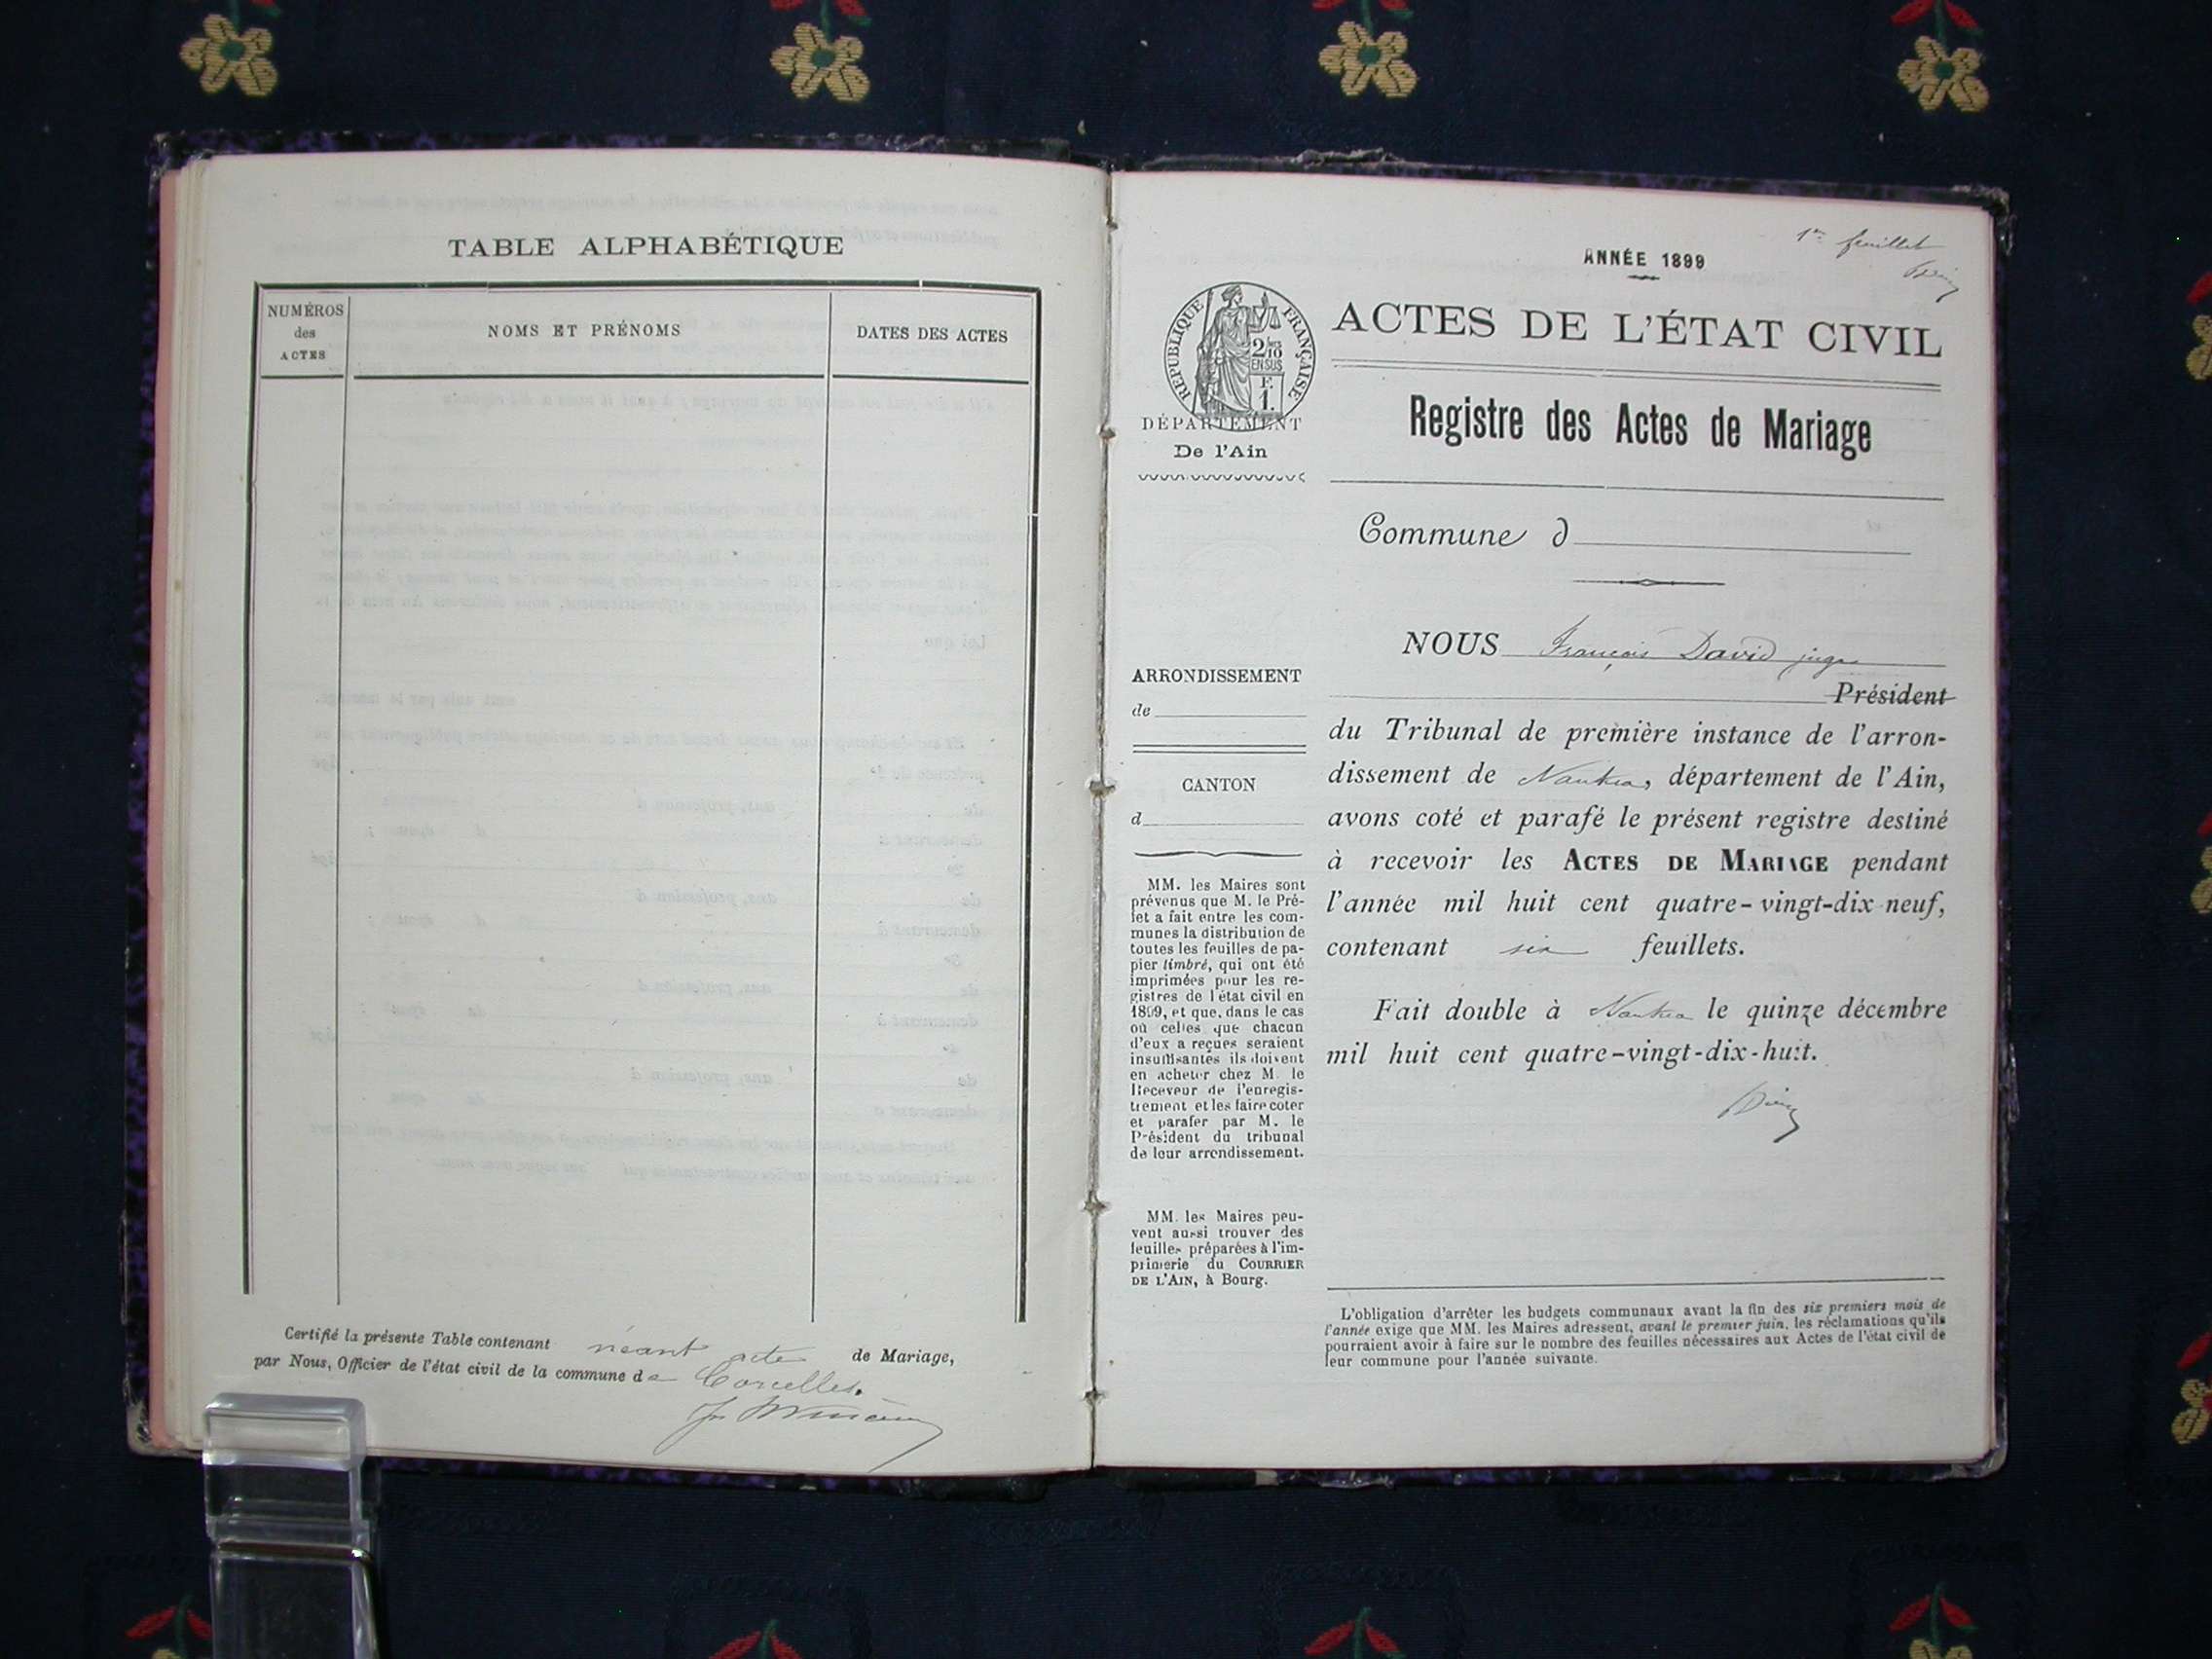 TABLE ALPHABÉTIQUE
NUMÉROS
des
ACTES
NOMS ET PRÉNOMS
DATES DES ACTES
Certifié la présente Table contenant néant acte de Mariage,
par Nous, Officier de l'état civil de la commune de Corcelles.
1er feuillet
ANNÉE 1899
RÉPUBLIQUE FRANÇAISE
2/10
EN SUS
F.
1.
DÉPARTEMENT
De l'Ain
ACTES DE L'ÉTAT CIVIL
Registre des Actes de Mariage
Commune d
ARRONDISSEMENT
de
CANTON
d
MM. les Maires sont
prévenus que M. le Pré-
fet a fait entre les com-
munes la distribution de
toutes les feuilles de pa-
pier timbré, qui ont été
imprimées pour les re-
gistres de l'état civil en
1899, et que, dans le cas
où celles que chacun
d'eux a reçues seraient
insuffisantes ils doivent
en acheter chez M. le
Receveur de l'enregis-
trement et les faire coter
et parafer par M. le
Président du tribunal
de leur arrondissement.
MM. les Maires peu-
vent aussi trouver des
feuilles préparées à l'im-
primerie du COURRIER
DE L'AIN, à Bourg.
NOUS François David juge
Président
du Tribunal de première instance de l'arron-
dissement de Nantua, département de l'Ain,
avons coté et parafé le présent registre destiné
à recevoir les ACTES DE MARIAGE pendant
l'année mil huit cent quatre-vingt-dix-neuf,
contenant six feuillets.
Fait double à Nantua le quinze décembre
mil huit cent quatre-vingt-dix-huit.
L'obligation d'arrêter les budgets communaux avant la fin des six premiers mois de
l'année exige que MM. les Maires adressent, avant le premier juin, les réclamations qu'ils
pourraient avoir à faire sur le nombre des feuilles nécessaires aux Actes de l'état civil de
leur commune pour l'année suivante.